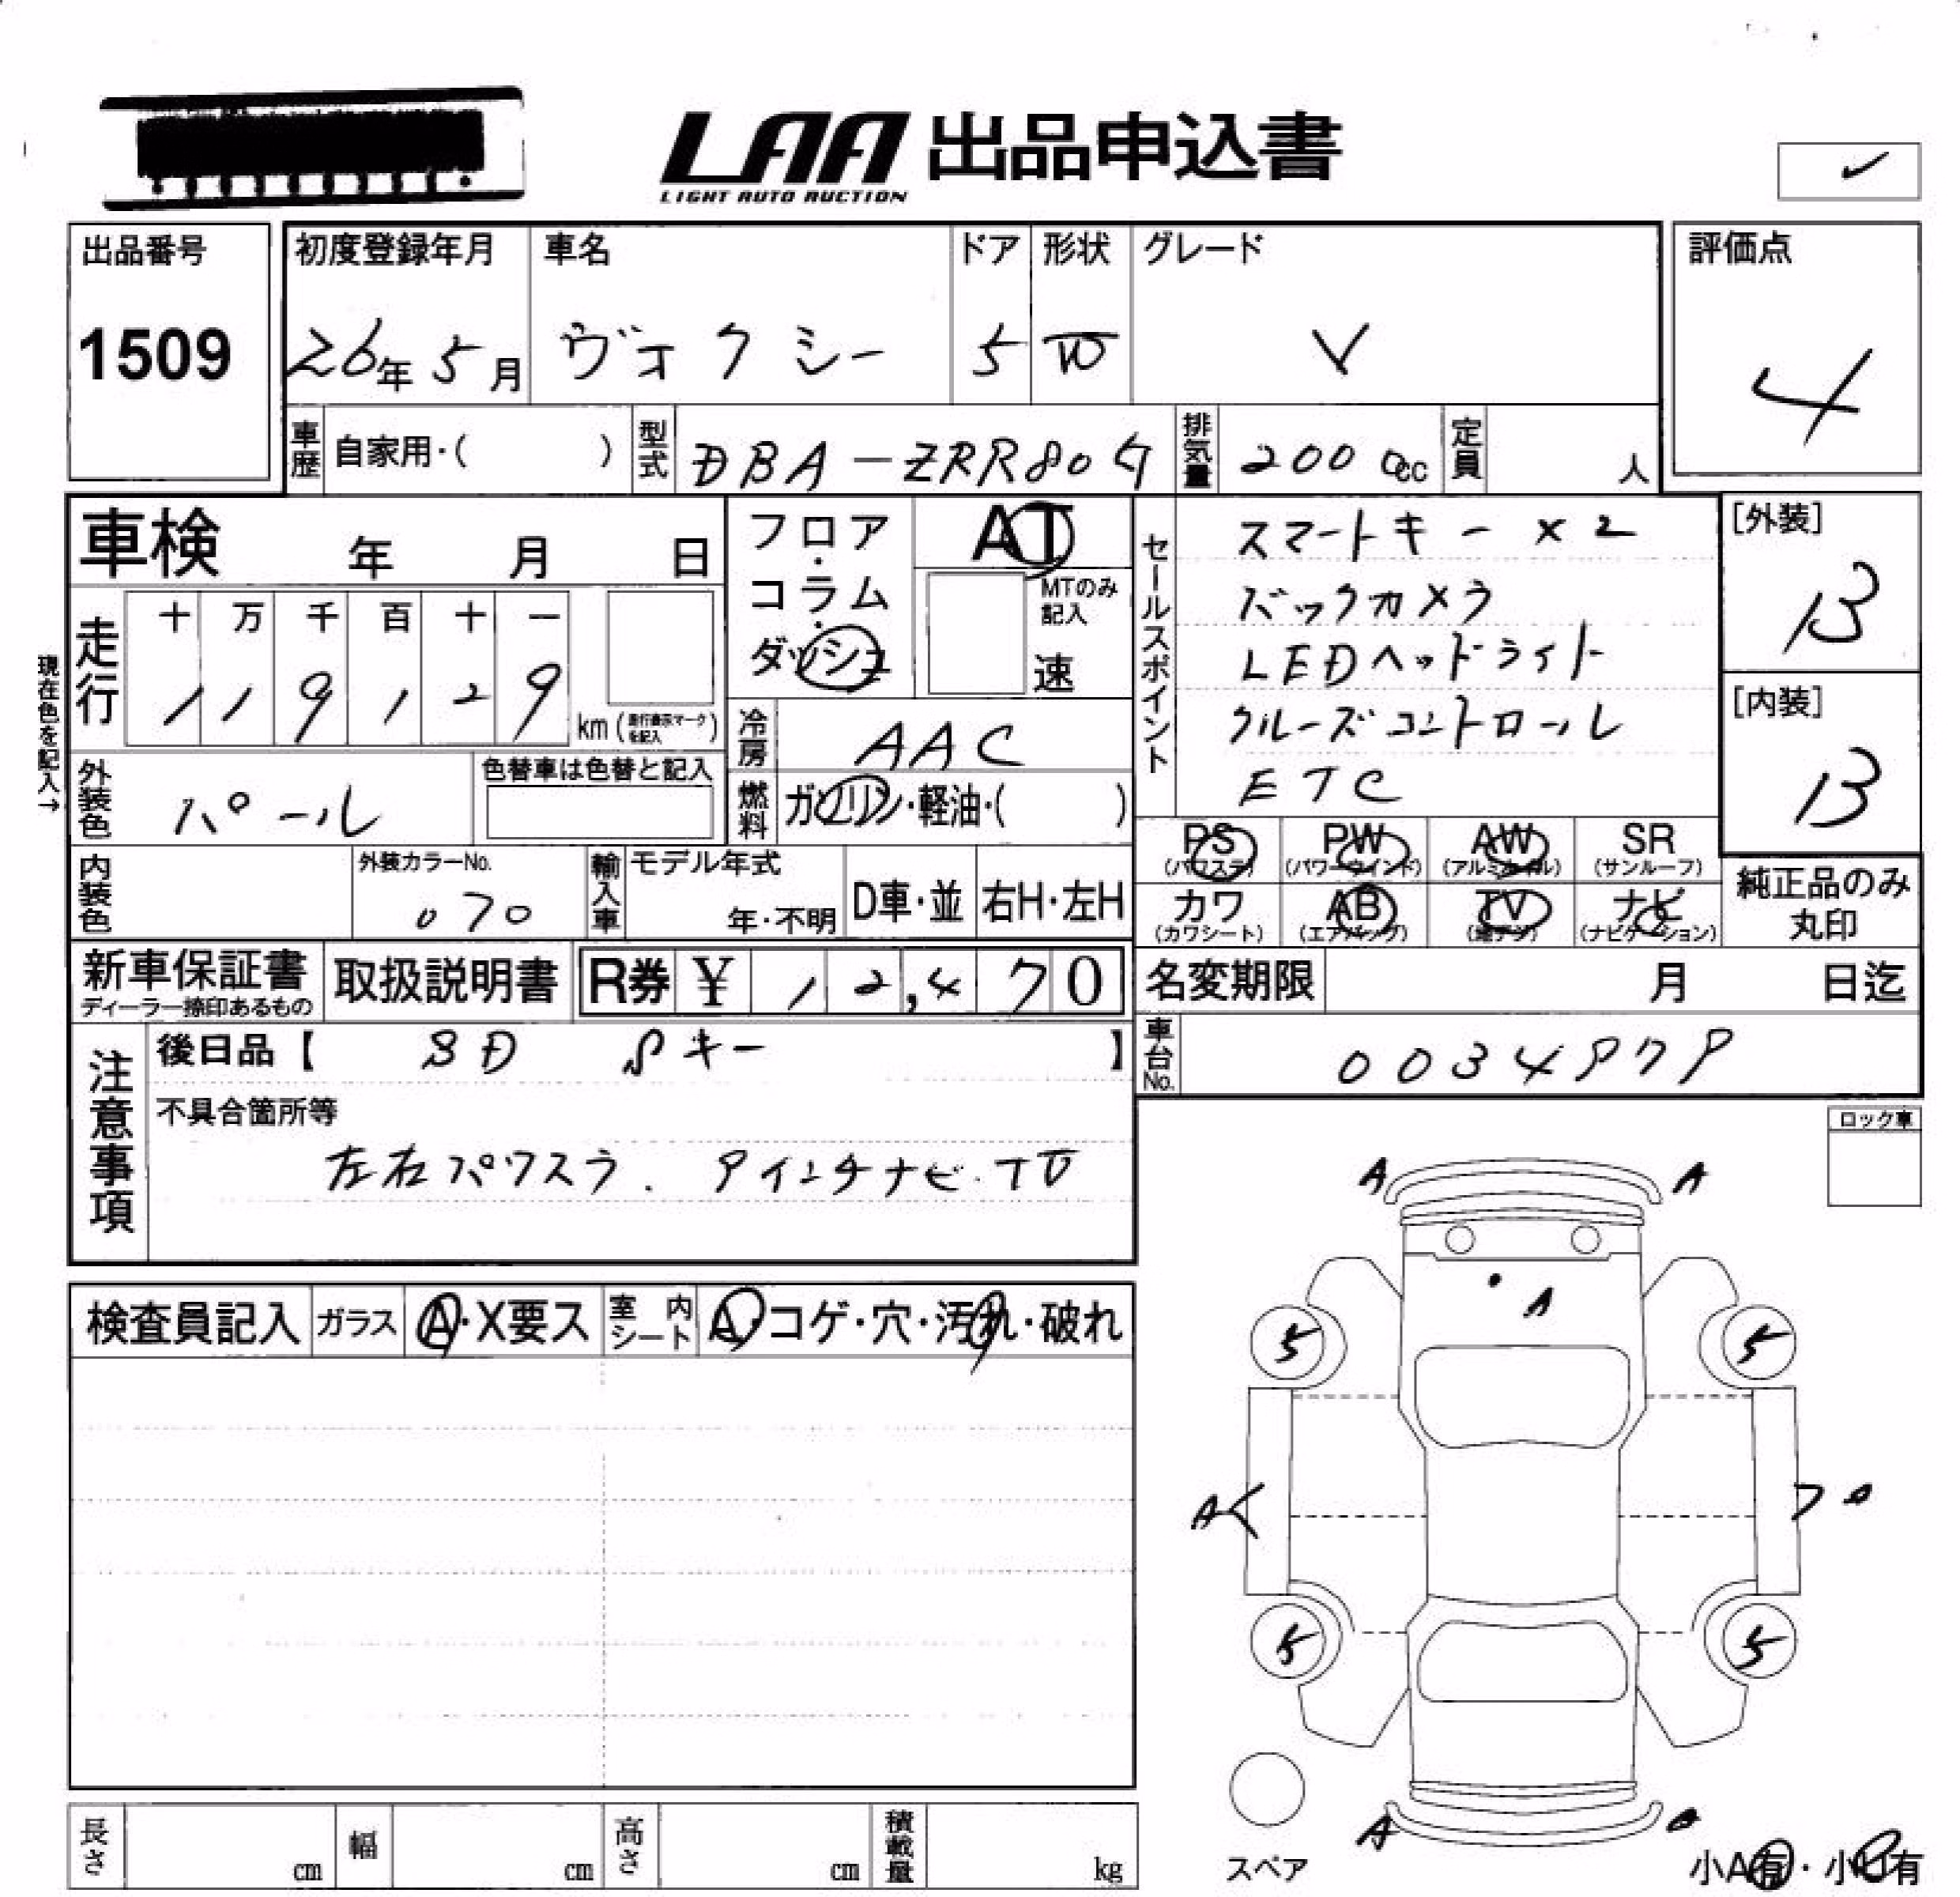 LAA 出品申込書
LIGHT AUTO AUCTION
出品番号
1509
初度登録年月 車名 ドア 形状 グレード
26年 5月 ヴォクシー 5 W V
評価点
4
車歴 自家用・( ) 型式 DBA-ZRR80G 排気量 2000cc 定員 人
車検 年 月 日
フロア・コラム・ダッシュ
AT
MTのみ記入
速
現在色を記入→
走行 十 万 千 百 十 一
1 1 9 1 2 9 km (走行表示マークを記入)
冷房 AAC
燃料 ガソリン・軽油・( )
外装色 パール
色替車は色替と記入
内装色
外装カラーNo.
070
輸入車 モデル年式
年・不明 D車・並 右H・左H
セールスポイント
スマートキー×2
バックカメラ
LEDヘッドライト
クルーズコントロール
ETC
[外装]
B
[内装]
B
PS PW AW SR
(パワステ) (パワーウインド) (アルミホイル) (サンルーフ)
カワ AB TV ナビ
(カワシート) (エアバッグ) (地デジ) (ナビゲーション)
純正品のみ
丸印
新車保証書
ディーラー捺印あるもの
取扱説明書
R券 ¥ 12,470
名変期限 月 日迄
車台No. 0034979
注意事項
後日品【 SD Sキー 】
不具合箇所等
左右パワスラ. 9インチナビ.TV
ロック車
検査員記入 ガラス A・X要ス 室内シート A・コゲ・穴・汚れ・破れ
A A
A
5 5
A
5 5
A
スペア
小A有・小U有
長さ cm 幅 cm 高さ cm 積載量 kg